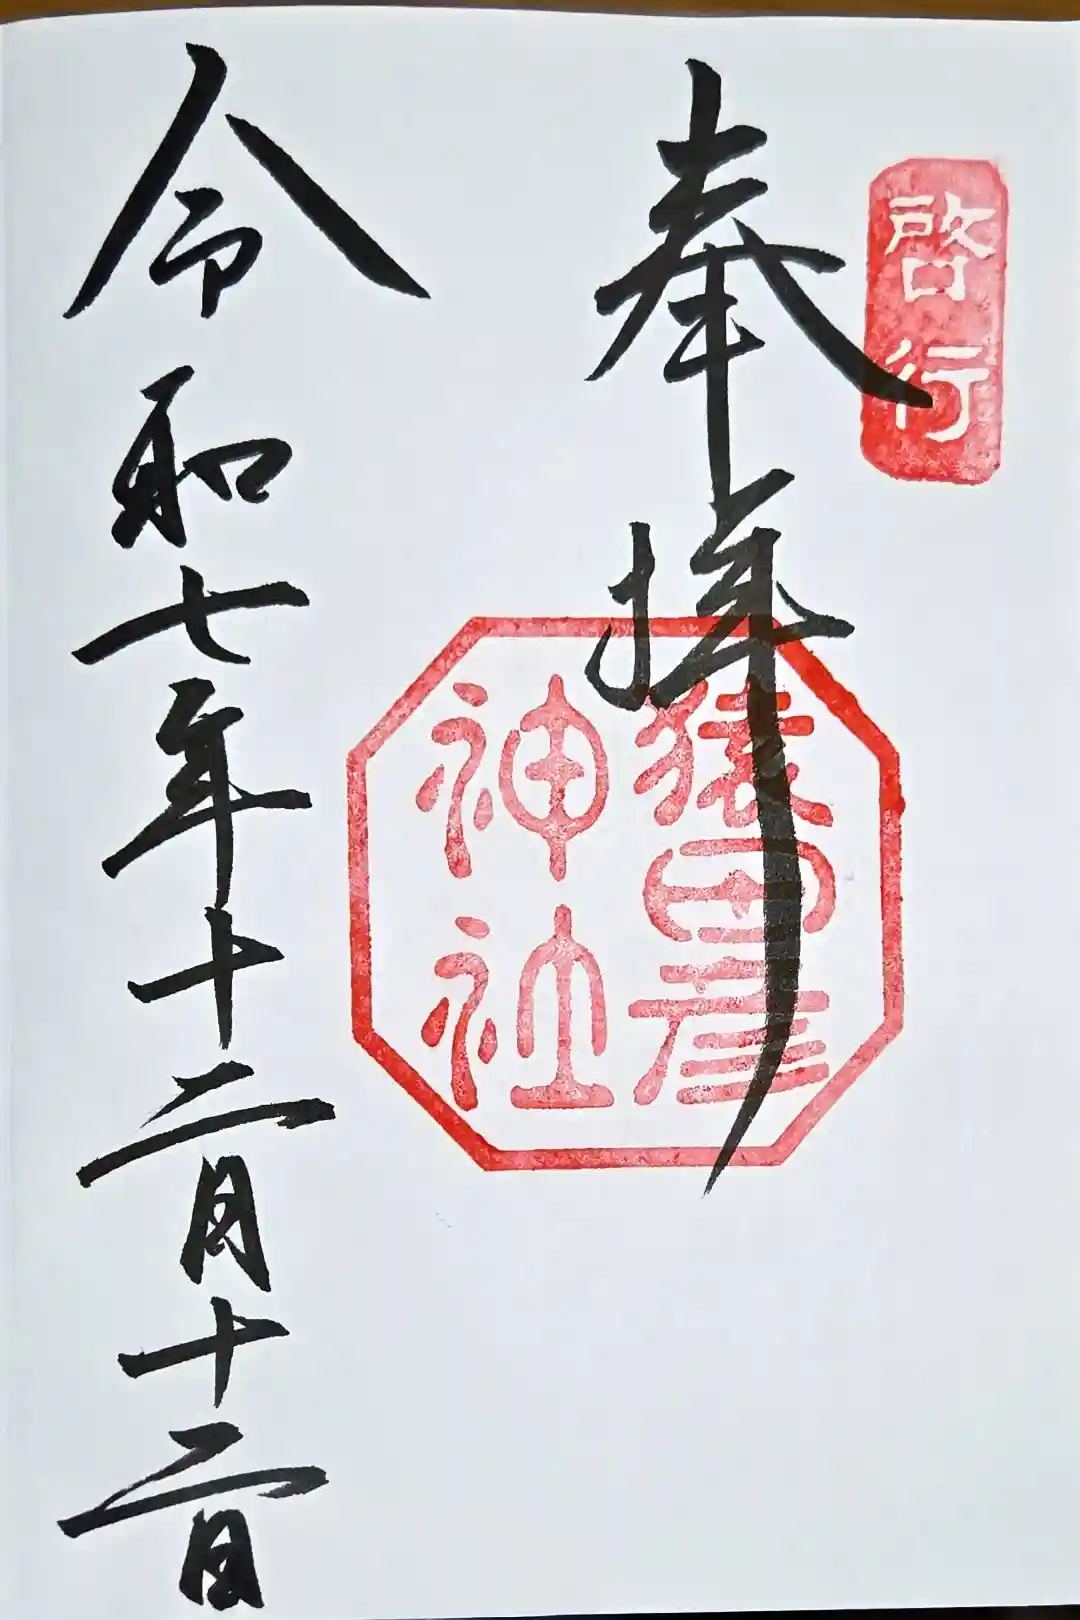 啓行
奉拝
猿田彦
神社
令和七年十二月十二日